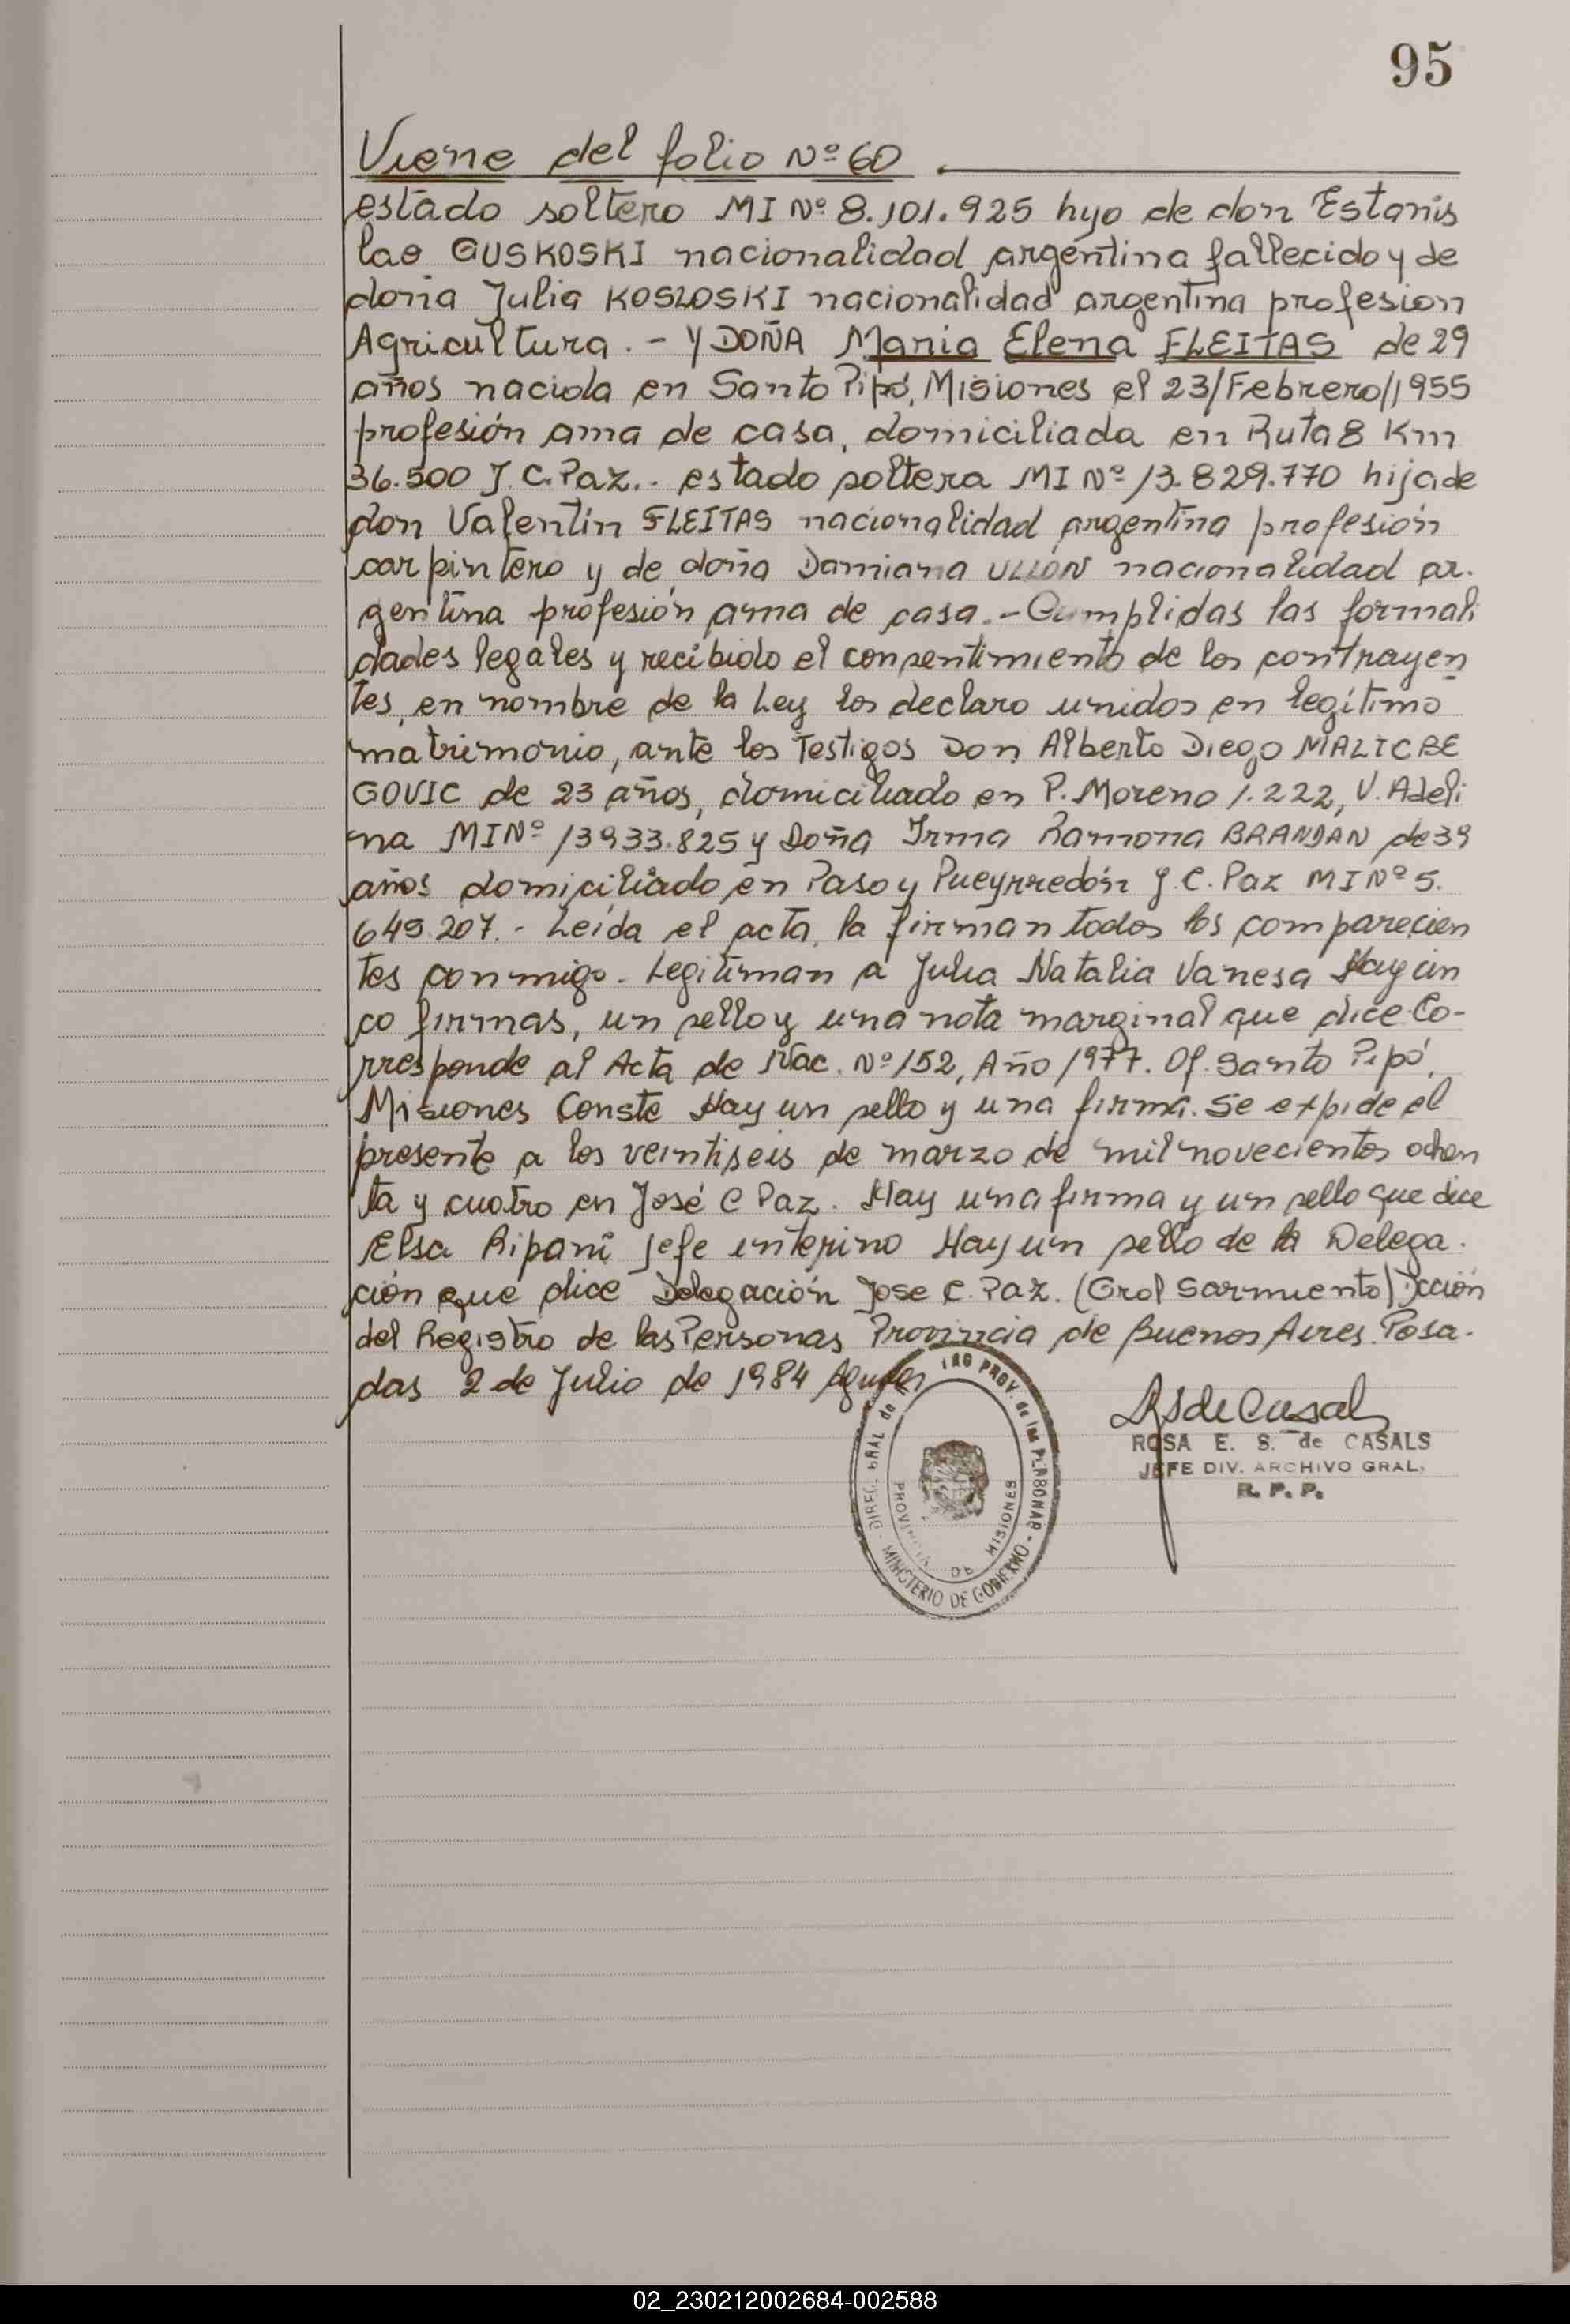 95
Viene del folio Nº 60
estado soltero MI Nº 8.101.925 hijo de don Estanis
lao GUSKOSKI nacionalidad argentina fallecido y de
doña Julia KOSLOSKI nacionalidad argentina profesion
Agricultura. - Y DOÑA Maria Elena FLEITAS de 29
años nacida en Santo Pipó, Misiones el 23/Febrero/1955
profesión ama de casa, domiciliada en Ruta 8 Km
36.500 J. C. Paz.- estado soltera MI Nº 13.829.770 hija de
don Valentín FLEITAS nacionalidad argentina profesión
carpintero y de doña Damiana ULLÓN nacionalidad ar.
gentina profesión ama de casa.- Cumplidas las formali
dades legales y recibido el consentimiento de los contrayen
tes, en nombre de la Ley los declaro unidos en legítimo
matrimonio, ante los Testigos Don Alberto Diego MALICBE
GOVIC de 23 años, domiciliado en P. Moreno 1.222, V. Adeli
na MI Nº 13933.825 y Doña Irma Ramona BRANDAN de 39
años domiciliado en Paso y Pueyrredón J. C. Paz MI Nº 5.
649.207.- Leída el acta, la firman todos los comparecien
tes conmigo. Legitiman a Julia Natalia Vanesa Hay cin
co firmas, un sello y una nota marginal que dice Co-
rresponde al Acta de Nac. Nº 152, Año 1977. Of. Santo Pipó,
Misiones Conste Hay un sello y una firma. Se expide el
presente a los veintiseis de marzo de mil novecientos ochen
ta y cuatro en José C Paz. Hay una firma y un sello que dice
Elsa Ripani Jefe interino Hay un sello de la Delega.
ción que dice Delegación Jose C. Paz. (Gral Sarmiento) Dcción
del Registro de las Personas Provincia de Buenos Aires. Posa-
das 2 de Julio de 1984
RSdeCasals
ROSA E. S. de CASALS
JEFE DIV. ARCHIVO GRAL.
R. P. P.
DIREC. GRAL de PROV. de las PERSONAS - MINISTERIO DE GOBIERNO -
PROVINCIA DE MISIONES
02_230212002684-002588